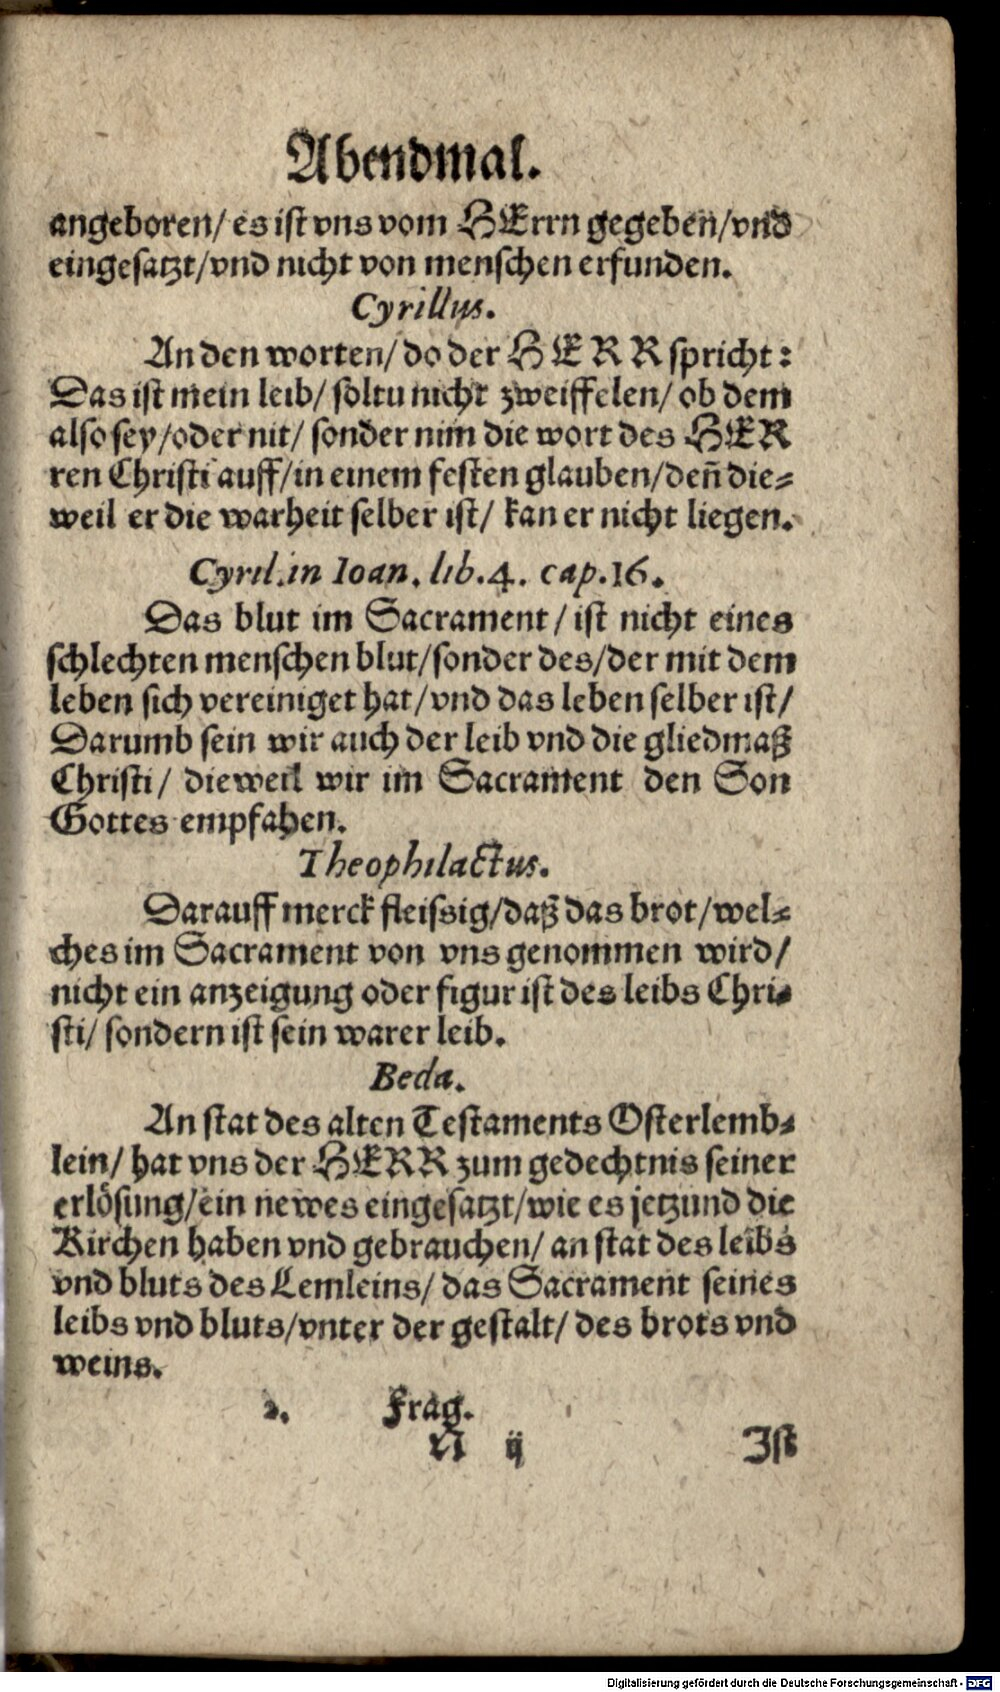 Abendmal.
angeboren/ es ist vns vom HErrn gegeben/vnd
eingesatzt/vnd nicht von menschen erfunden.
Cyrillus.
An den worten/ do der HERR spricht:
Das ist mein leib/ soltu nicht zweiffelen/ ob dem
also sey/oder nit/ sonder nim die wort des HER
ren Christi auff/in einem festen glauben/den̄ die-
weil er die warheit selber ist/ kan er nicht liegen.
Cyril.in Ioan. lib.4. cap.16.
Das blut im Sacrament/ ist nicht eines
schlechten menschen blut/sonder des/der mit dem
leben sich vereiniget hat/vnd das leben selber ist/
Darumb sein wir auch der leib vnd die gliedmaß
Christi/ dieweil wir im Sacrament den Son
Gottes empfahen.
Theophilactus.
Darauff merck fleissig/daß das brot/wel-
ches im Sacrament von vns genommen wird/
nicht ein anzeigung oder figur ist des leibs Chri-
sti/ sondern ist sein warer leib.
Beda.
An stat des alten Testaments Osterlemb-
lein/ hat vns der HERR zum gedechtnis seiner
erlösung/ein newes eingesatzt/wie es jetzund die
Kirchen haben vnd gebrauchen/ an stat des leibs
vnd bluts des Lemleins/ das Sacrament seines
leibs vnd bluts/vnter der gestalt/ des brots vnd
weins.
2. Frag.
N ij Ist
Digitalisierung gefördert durch die Deutsche Forschungsgemeinschaft - DFG